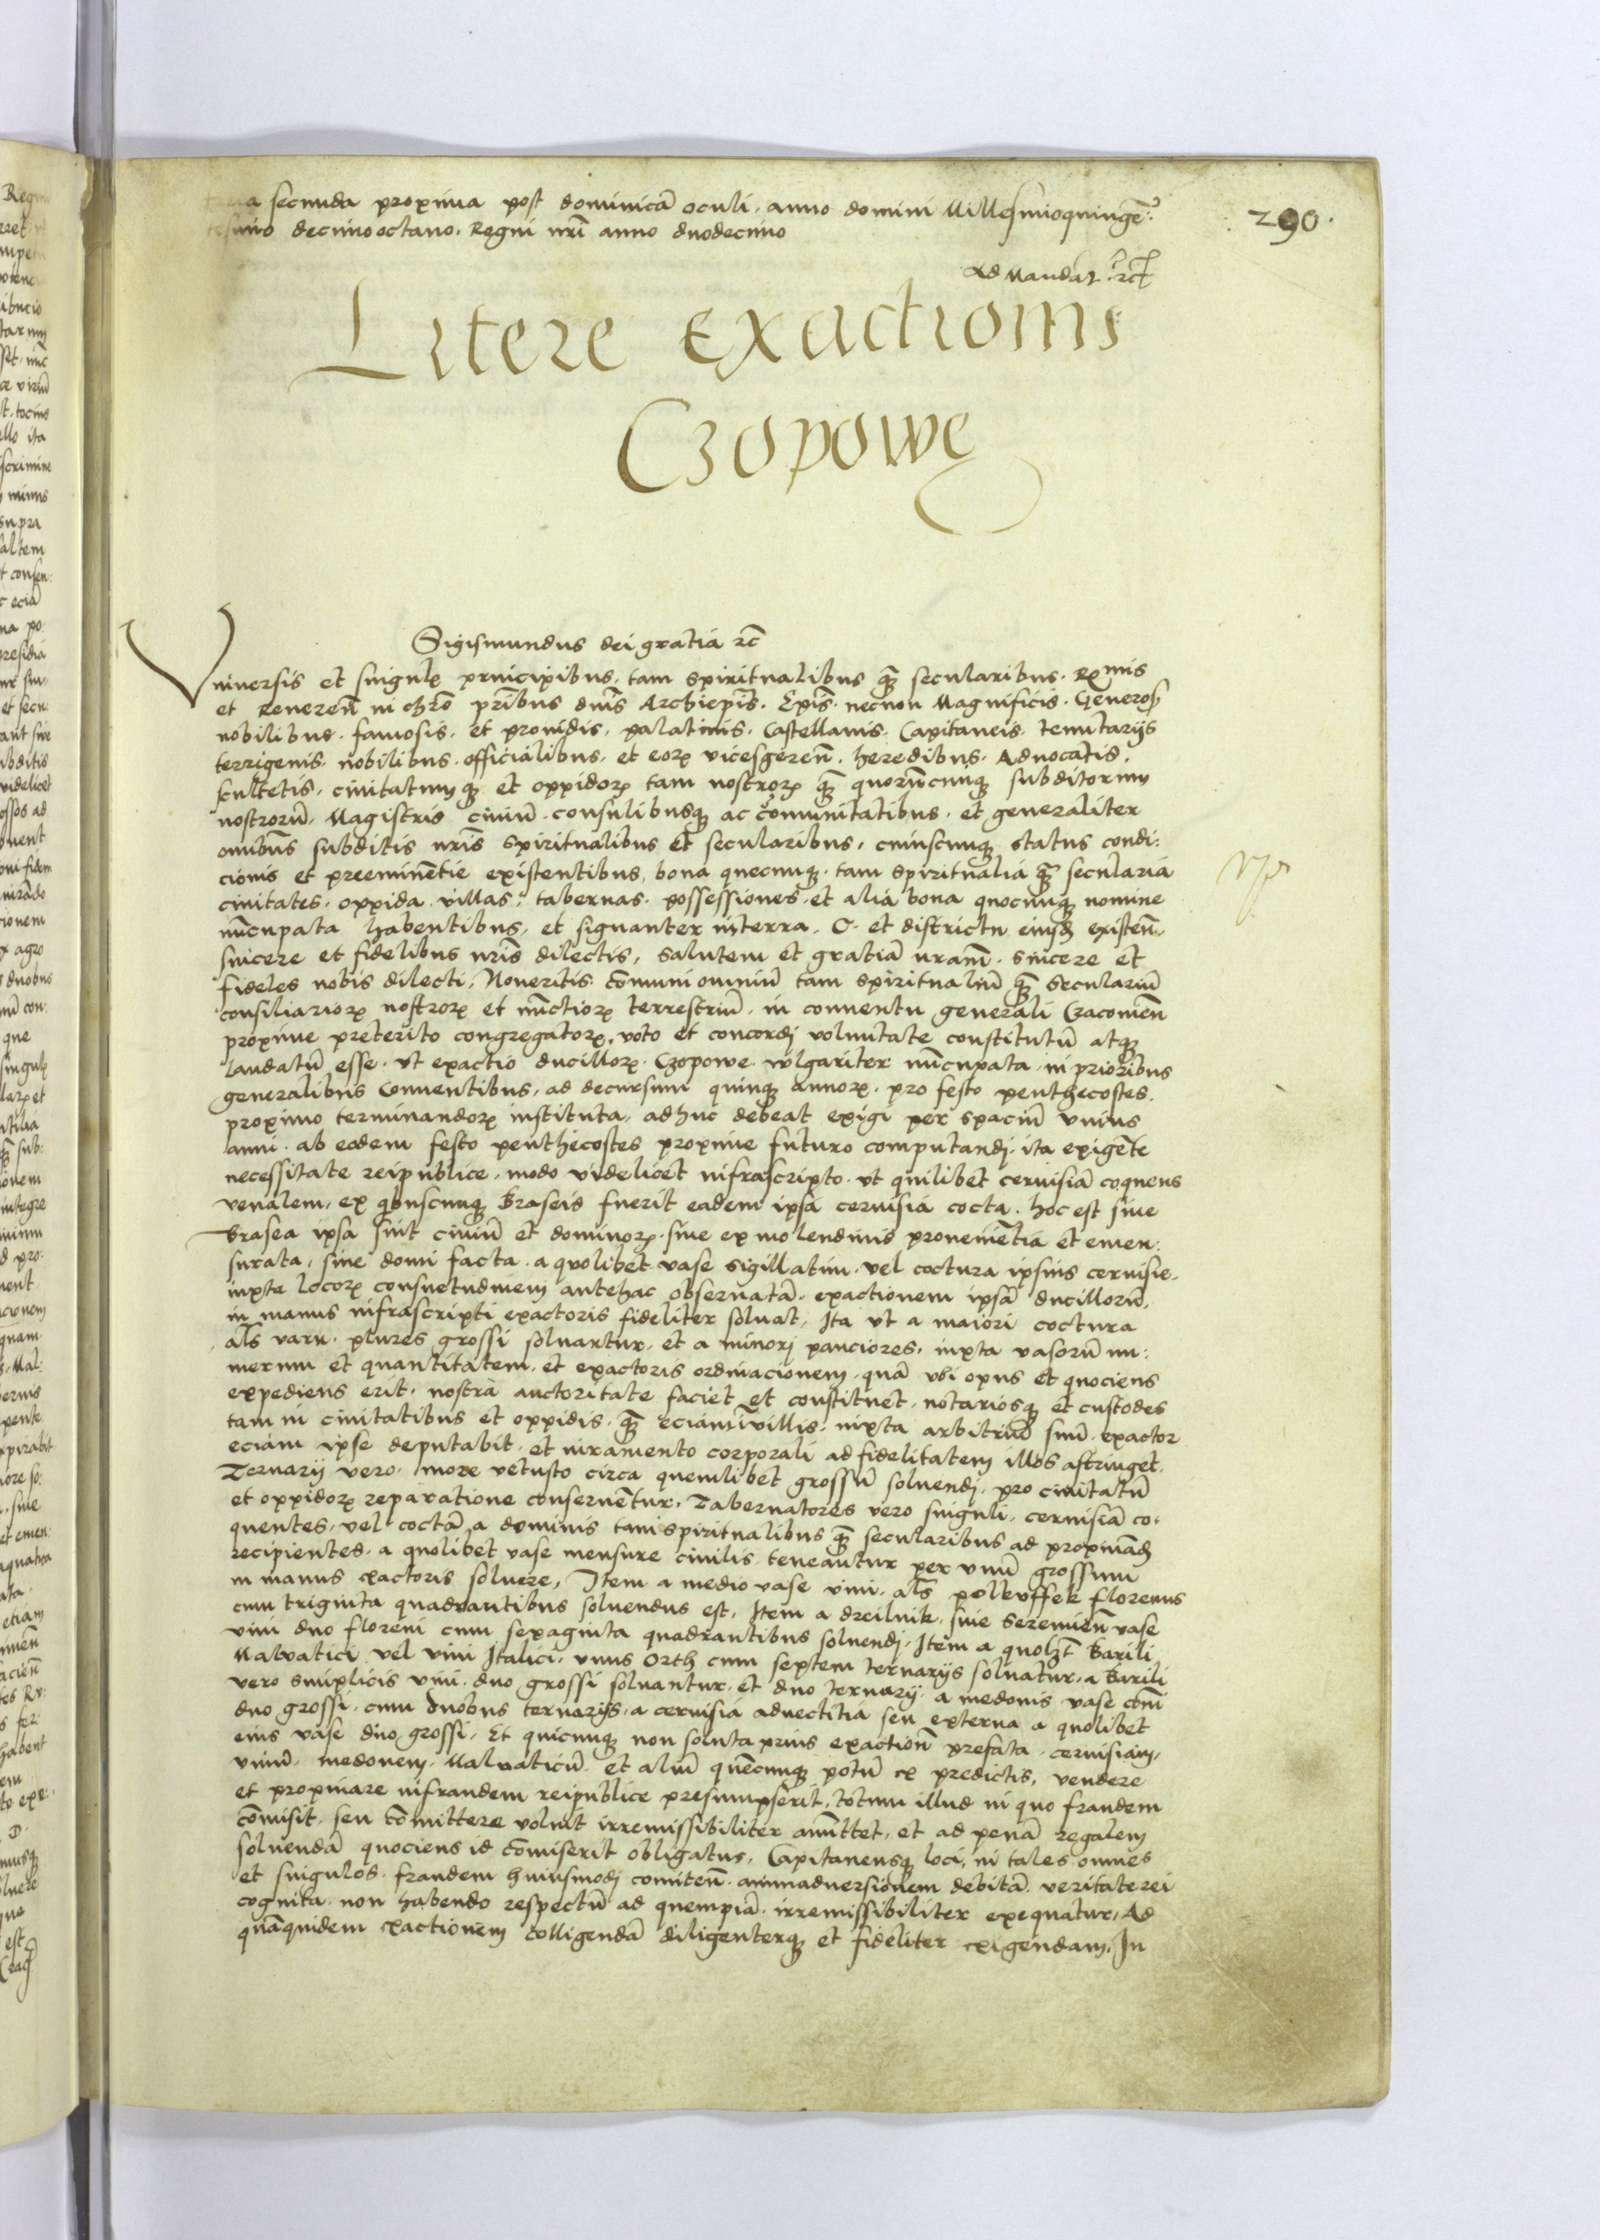 secunda proxima post dominicā oculi, anno domini Millesimoquingē:
tesimo decimooctavo, Regni nrī anno duodecimo
290.
Ad Mandatū rc̄
Litere Exactionis
Czopowe
Sigismundus dei gratia rc̄
Universis et singulis principibus, tam spiritualibus q̄ secularibus, R̄mis
et Reverēn in chrō pr̄ibus dn̄is Archiepīs, Epīs, necnon Magnificis, Generosis
nobilibus, famosis, et providis, palatinis, Castellanis, Capitaneis, tenutarijs
terrigenis, nobilibus, officialibus, et eorꝝ vicesgerēn, heredibus, Advocatis,
scultetis, civitatumqꝫ et oppidorꝝ tam nostrorꝝ q̄ quorūcunqꝫ subditorum
nostrorū, Magistris civiū, consulibusqꝫ ac cōmunitatibus, et generaliter
omībus subditis nrīs spiritualibus et secularibus, cuiuscunqꝫ status condi:
cionis et preeminētie existentibus, bona quecunqꝫ, tam spiritualia q̄ secularia
civitates, oppida, villas, tabernas, possessiones, et alia bona quocunqꝫ nomine
nūcupata habentibus, et signanter interra, C. et districtu eiusdꝫ existēn,
sincere et fidelibus nrīs dilectis, salutem et gratiā nram̄, sincere et
fideles nobis dilecti, Noveritis cōmuni omniū tam spiritualiū q̄ seculariū
consiliariorꝝ nostrorꝝ et nūctiorꝝ terrestriū, in conventu generali Cracoviēn
proxime preterito congregatorꝝ, voto et concordj voluntate constitutū atqꝫ
laudatū esse, ut exactio ducillorꝝ, Czopowe vulgariter nūcupata, in prioribus
generalibus Conventibus, ad decursum quinqꝫ annorꝝ, pro festo penthecostes,
proximo terminandorꝝ instituta, adhuc debeat exigi per spaciū unius
anni, ab eodem festo penthecostes proxime futuro computandj, ita exigēte
necessitate reipublice, modo videlicet infrascripto, ut quilibet cervisiā coquens
venalem, ex quibuscunqꝫ Braseis fuerit eadem ipsa cervisia cocta, hoc est sive
brasea ipsa sint civiū et dominorꝝ, sive ex molendinis provenientia et emen:
surata, sive domi facta, a quolibet vase sigillatim, vel coctura ipsius cervisie,
iuxta locorꝝ consuetudinem antehac observatā, exactionem ipsā ducillorū,
in manus infrascripti exactoris fideliter solvat, Ita ut a maiori coctura
alš varu, plures grossi solvantur, et a minorj pauciores, iuxta vasorū nu:
merum et quantitatem, et exactoris ordinacionem, quā ubi opus et quociens
expediens erit, nostra auctoritate faciet et constituet, notariosqꝫ et custodes
tam in civitatibus et oppidis, q̄ eciam ī villis, iuxta arbitriū suū, exactor
eciam ipse deputabit, et iuramento corporali ad fidelitatem illos astringet.
Ternarij vero, more vetusto circa quemlibet grossū solvendj, pro civitatū
et oppidorꝝ reparatione conserventur, Tabernatores vero singuli, cervisiā co:
quentes, vel coctā a dominis tam spiritualibus q̄ secularibus ad propinādꝫ
recipientes, a quolibet vase mensure civilis teneantur per unū grossum
in manus exactoris solvere, Item a medio vase vini, alš polkuffek florenus
cum triginta quadrantibus solvendus est, Item a dreilink, sive Seremiēn vase
vini duo floreni cum sexaginta quadrantibus solvendj, Item a quolꝫt Barili
Malvatici vel vini Italici, unus Orth cum septem ternarijs solvatur, a Barili
vero simplicis vini, duo grossi solvantur, et duo ternarij, a medonis vase cōnī
duo grossi, cum duobus ternarijs, a cervisia advectitia seu externa a quolibet
eius vase duo grossi, Et quicunqꝫ non soluta prius exactionē prefata, cervisiam,
vinū, medonem, Malvaticū, et aliū quēcunqꝫ potū ex predictis, vendere
et propinare infraudem reipublice presumpserit, totum illud in quo fraudem
cōmisit, seu cōmittere voluit irremissibiliter amittet, et ad penā regalem
solvendā quociens id cōmiserit obligatur, Capitaneusqꝫ loci, in tales omnes
et singulos, fraudem huiusmodj comittēn, animadversionem debitā, veritate rei
cognita, non habendo respectū ad quempiā, irremissibiliter exequatur, Ad
quāquidem exactionem colligendā diligenterqꝫ et fideliter exigendam, In